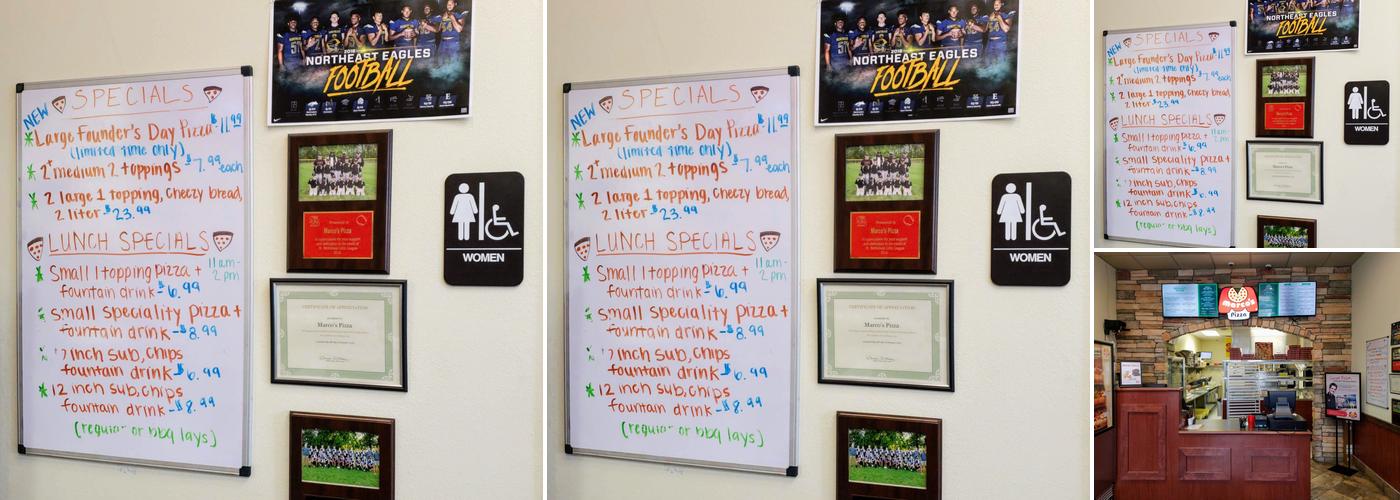 NEW
SPECIALS
Large Founder's Day Pizza $11.99
(limited time only)
2+ medium 2 toppings $7.99 each
2 large 1 topping, Cheezy bread,
2 liter $23.99
LUNCH SPECIALS
11am-
2pm
Small 1 topping pizza +
fountain drink - $6.99
small speciality pizza +
fountain drink - $8.99
inch sub, chips
fountain drink - $6.99
12 inch sub, chips
fountain drink - $8.99
(regular or bbq lays)
2018
NORTHEAST EAGLES
FOOTBALL
Marco's Pizza
CERTIFICATE OF APPRECIATION
Marco's Pizza
WOMEN
NEW
SPECIALS
Large Founder's Day Pizza $11.99
(limited time only)
2+ medium 2 toppings $7.99 each
2 large 1 topping, Cheezy bread,
2 liter $23.99
LUNCH SPECIALS
11am-
2pm
Small 1 topping pizza +
fountain drink - $6.99
small speciality pizza +
fountain drink - $8.99
inch sub, chips
fountain drink - $6.99
12 inch sub, chips
fountain drink - $8.99
(regular or bbq lays)
2018
NORTHEAST EAGLES
FOOTBALL
Marco's Pizza
CERTIFICATE OF APPRECIATION
Marco's Pizza
WOMEN
NEW
SPECIALS
Large Founder's Day Pizza $11.99
(limited time only)
2+ medium 2 toppings $7.99 each
2 large 1 topping, Cheezy bread,
2 liter $23.99
LUNCH SPECIALS
11am-
2pm
Small 1 topping pizza +
fountain drink - $6.99
small speciality pizza +
fountain drink - $8.99
inch sub, chips
fountain drink - $6.99
12 inch sub, chips
fountain drink - $8.99
(regular or bbq lays)
NORTHEAST EAGLES
FOOTBALL
WOMEN
Marco's
Pizza